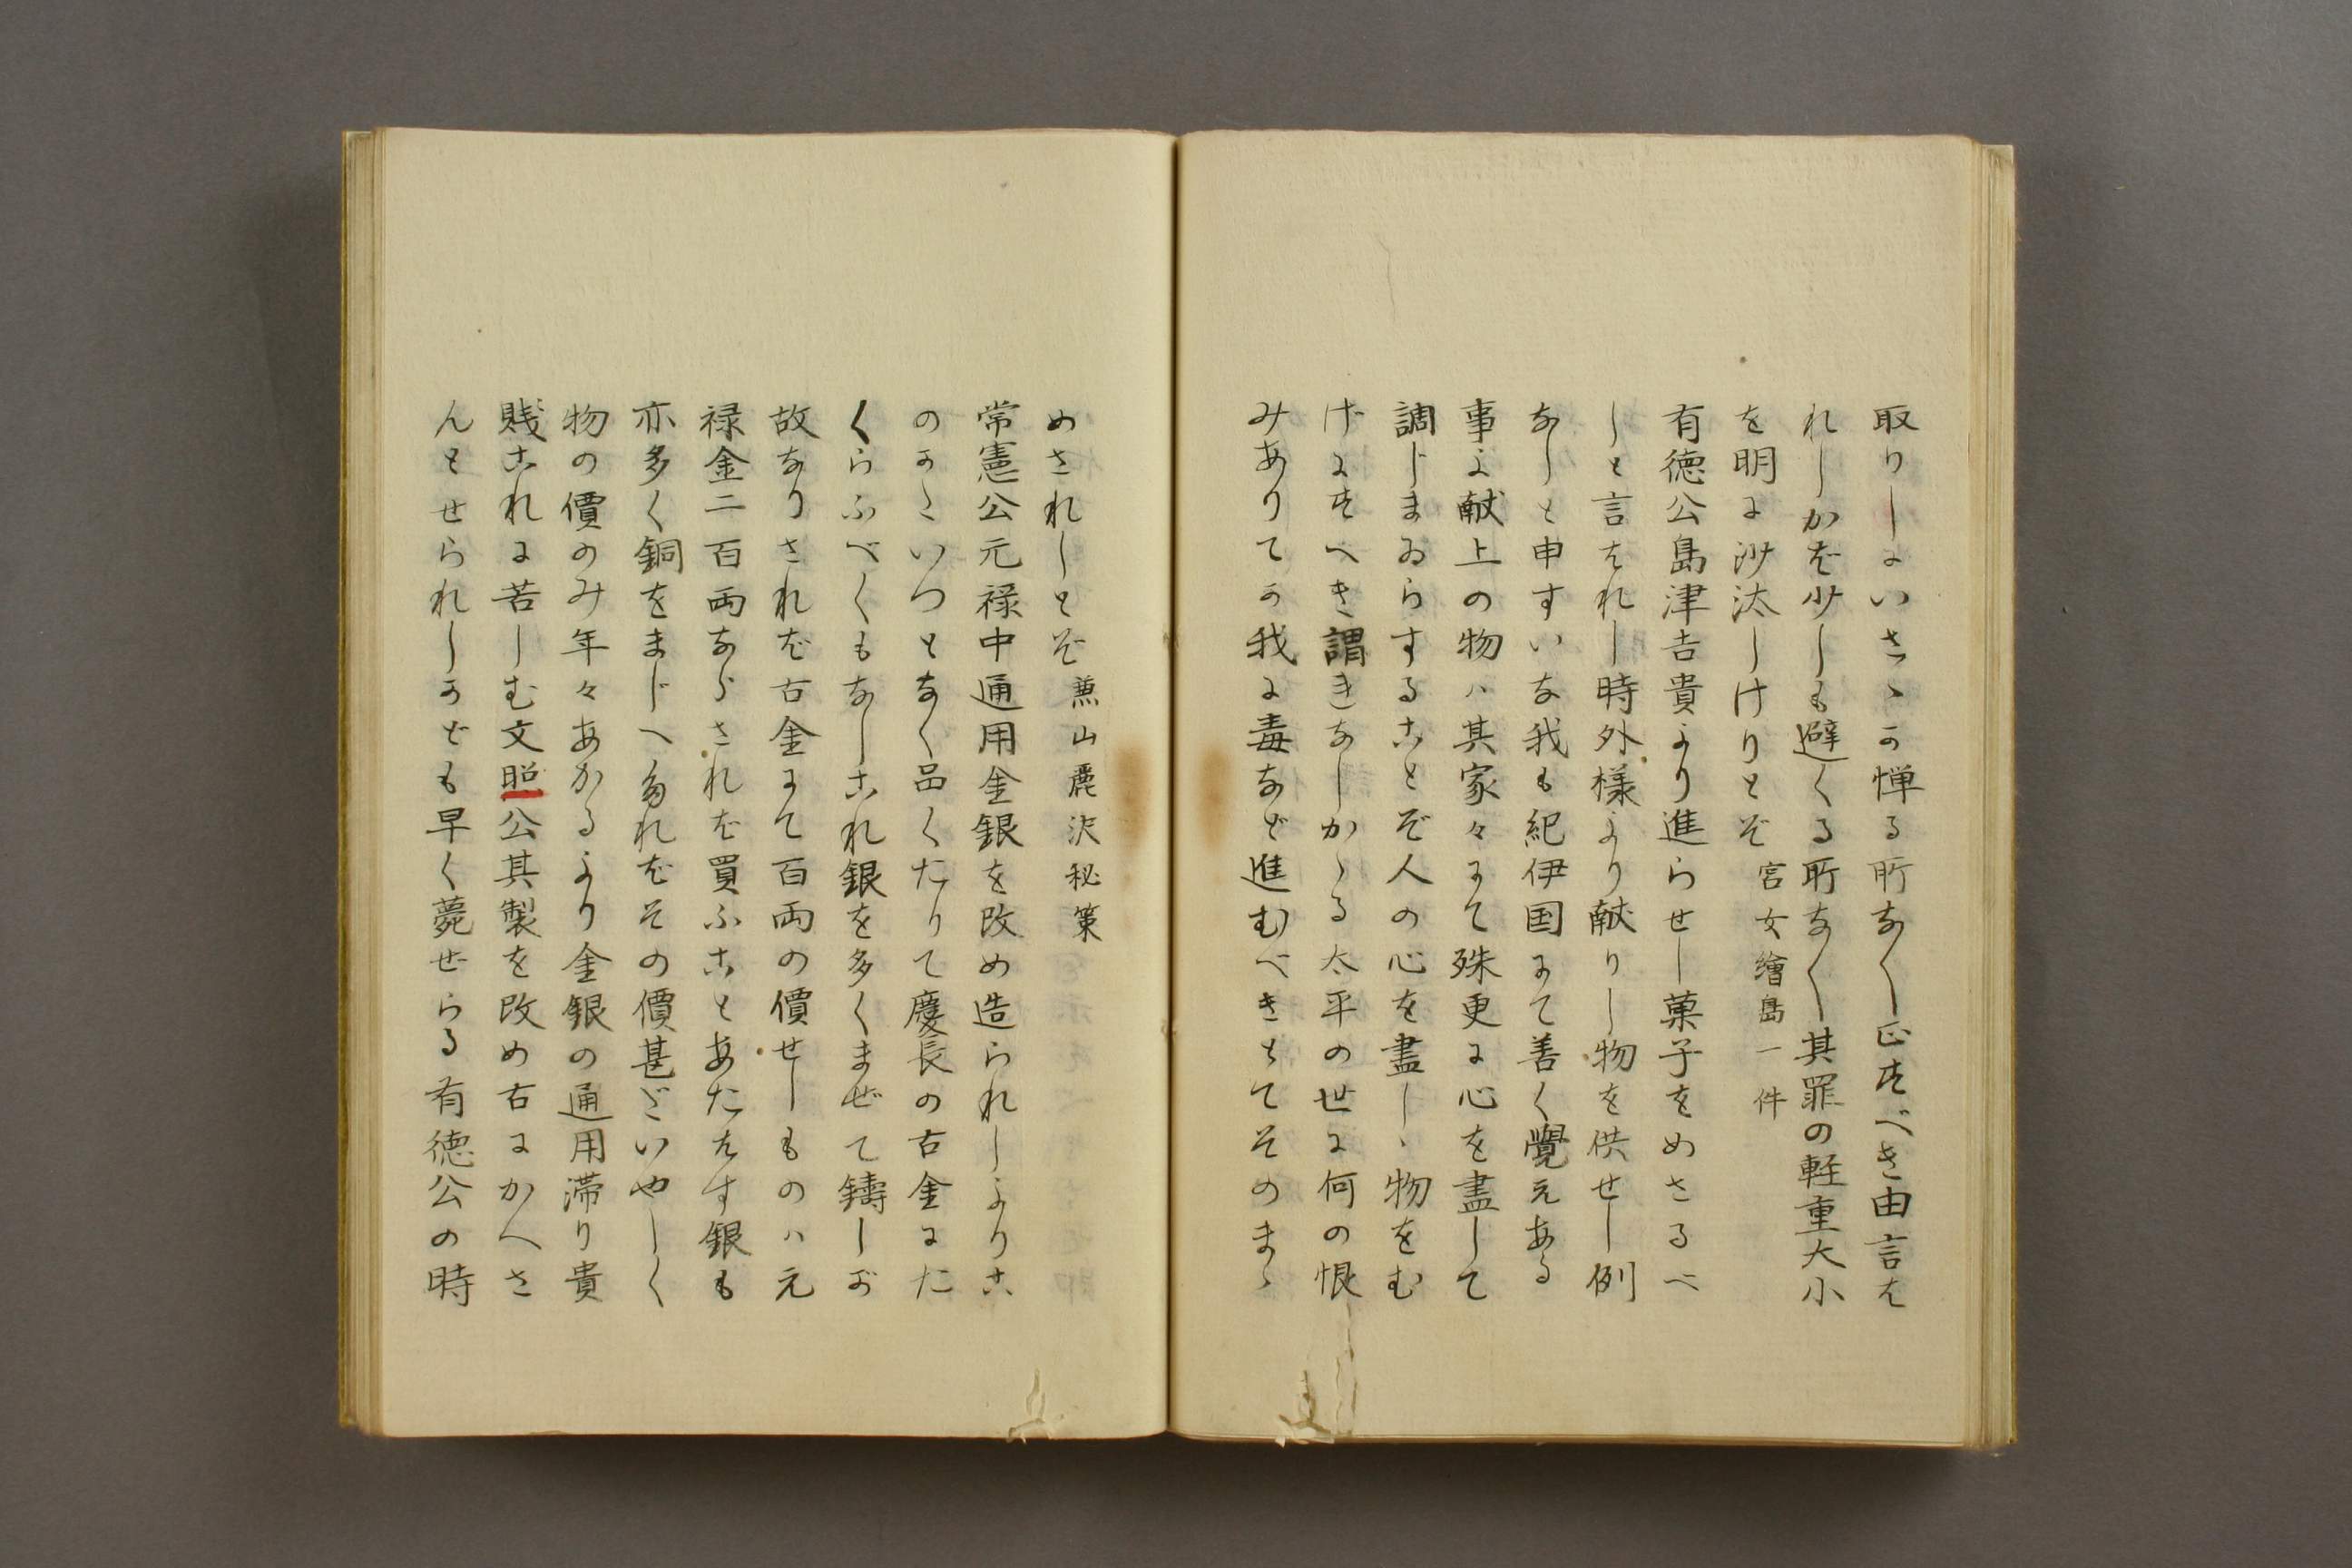 取りしにいさゝか憚る所なく正すべき由言は
れしかば少しも避くる所なく其罪の軽重大小
を明に沙汰しけりとぞ 宮女繪島一件
有徳公島津吉貴より進らせし菓子をめさるべ
しと言はれし時外様より献りし物を供せし例
なしと申すいな我も紀伊国にて善く覺えある
事よ献上の物ハ其家々にて殊更に心を盡して
調じまゐらすることぞ人の心を盡しゝ物をむ
げにすへき謂きなしかゝる太平の世に何の恨
みありてか我に毒など進むべきとてそのまゝ
めされしとぞ 兼山麗沢秘策
常憲公元禄中通用金銀を改め造られしよりこ
のかたいつとなく品くたりて慶長の古金にた
くらふべくもなしこれ銀を多くまぜて鑄しが
故なりされば古金にて百両の價せしものハ元
禄金二百両ならされば買ふことあたはす銀も
亦多く銅をまじへたればその價甚だいやしく
物の價のみ年々あかるより金銀の通用滞り貴
賎これに苦しむ文昭公其製を改め古にかへさ
んとせられしかども早く薨ぜらる有徳公の時